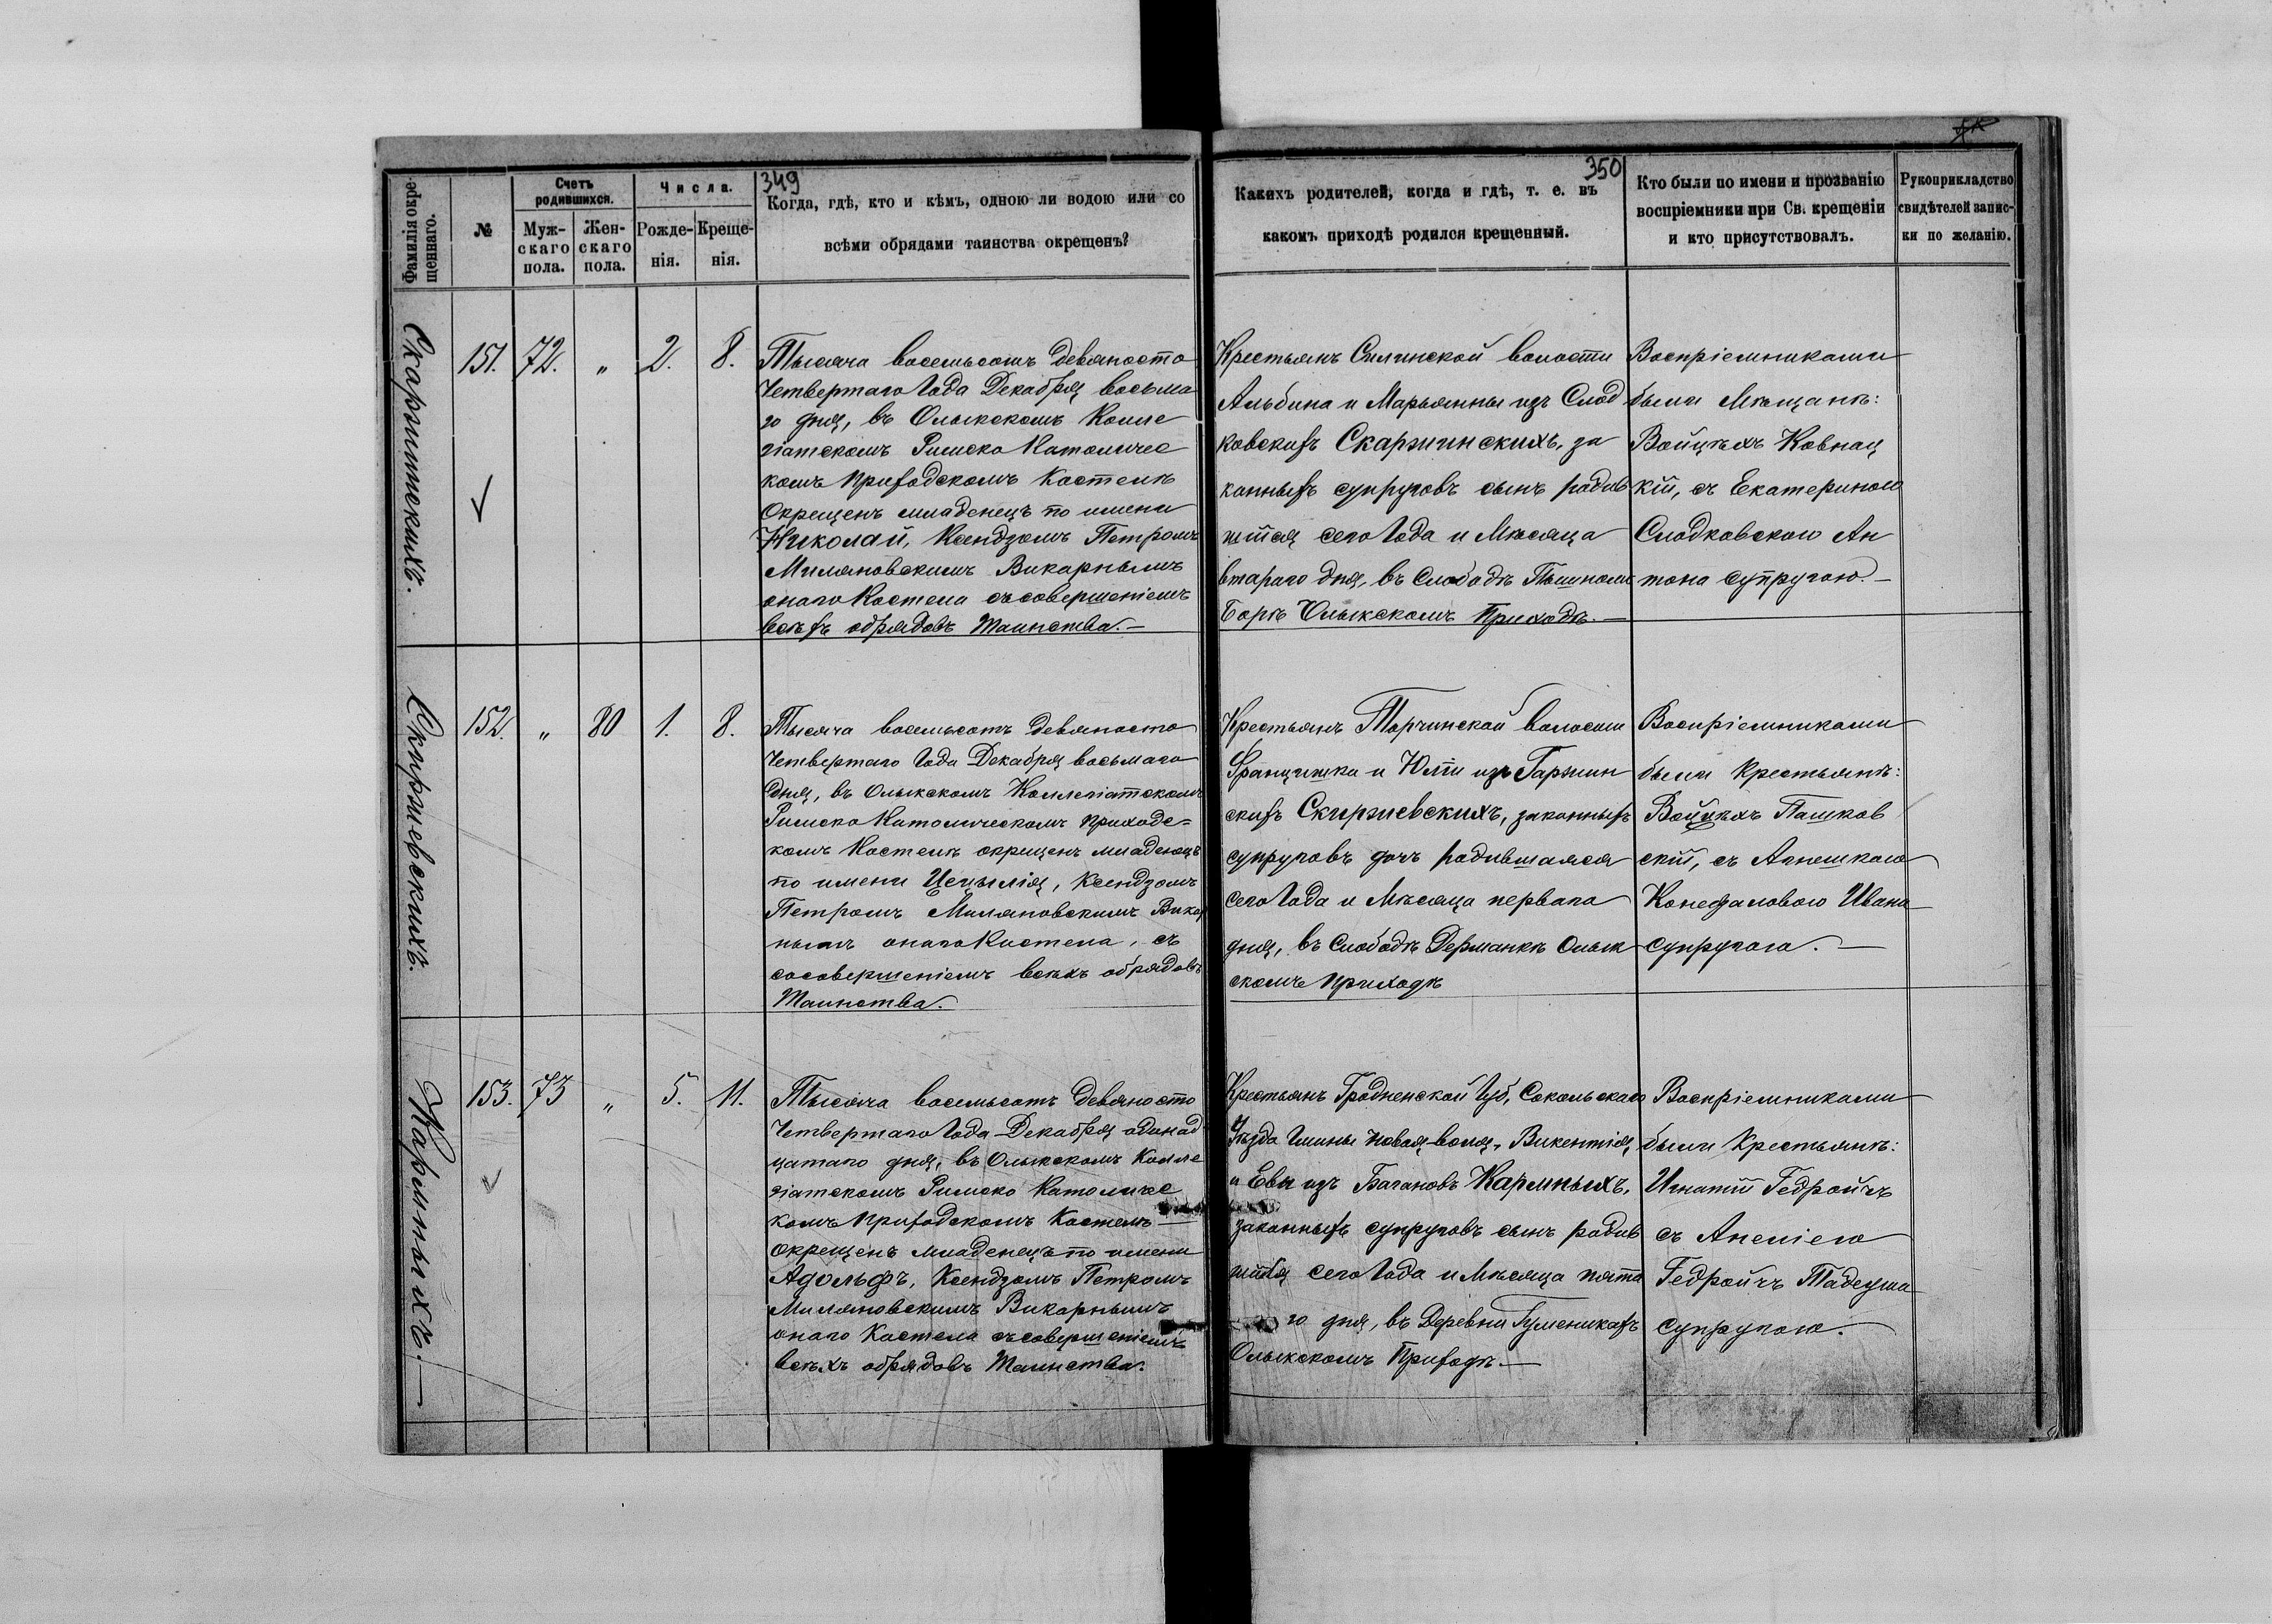 349
350
Фамилія окре-
щеннаго.
№
Счетъ
родившихся.
Муж-
скаго
пола.
Жен-
скаго
пола.
Числа.
Рожде-
нія.
Креще-
нія.
Когда, гдѣ, кто и кѣмъ, одною ли водою или со
всѣми обрядами таинства окрещенъ?
Какихъ родителей, когда и гдѣ, т. е. въ
какомъ приходѣ родился крещенный.
Кто были по имени и прозванію
воспріемники при Св. крещеніи
и кто присутствовалъ.
Рукоприкладство
свидѣтелей запис-
ки по желанію.
Скаржинскихъ.
151. 72. „ 2. 8.
Тысяча восемьсотъ девяносто
Четвертаго Года Декабря восьма
го дня, въ Олыкскомъ Колле
гіатскомъ Римско Католичес
комъ Приходскомъ Костелѣ
Окрещенъ младенецъ по имени
Николай, Ксендзомъ Петромъ
Миляновскимъ Викарнымъ
онаго Костела съ совершеніемъ
всѣхъ обрядовъ Таинства.—
Крестьянъ Силинской волости
Альбина и Марьянны изъ Слод
ковскихъ Скаржинскихъ, за
конныхъ супруговъ сынъ родив
шійся сего Года и Мѣсяца
втораго дня, въ Слободѣ Пышномъ
Борѣ Олыкскомъ Приходѣ.—
Воспріемниками
были Мѣщанѣ:
Войцѣхъ Ковнац
кій, съ Екатериною
Слодковскою Ан
тона супругою.—
Скиржевскихъ.
152. „ 80 1. 8.
Тысяча восемьсотъ девяносто
Четвертаго Года Декабря восьмаго
дня, въ Олыкскомъ Коллегіатскомъ
Римско Католическомъ Приходс=
комъ Костелѣ окрещенъ младенецъ
по имени Цецылія, Ксендзомъ
Петромъ Миляновскимъ Викар
нымъ онаго Костела, съ
сосовершеніемъ всѣхъ обрядовъ
Таинства.
Крестьянъ Торчинской волости
Францишка и Юліи изъ Гаржин
скихъ Скиржевскихъ, законныхъ
супруговъ дочъ родившаяся
сего Года и Мѣсяца перваго
дня, въ Слободѣ Дерманкѣ Олык
скомъ Приходѣ
Воспріемниками
были Крестьянѣ:
Войцѣхъ Пашков
скій, съ Агнешкою
Конефаловою Ивана
супругою.—
Кармныхъ.—
153. 73 „ 5. 11.
Тысяча восемьсотъ девяносто
Четвертаго Года Декабря одинад
цатаго дня, въ Олыкскомъ Колле
гіатскомъ Римско Католичес
комъ Приходскомъ Костелѣ—
окрещенъ младенецъ по имени
Адольфъ, Ксендзомъ Петромъ
Миляновскимъ Викарнымъ
онаго Костела съ совершеніемъ
всѣхъ обрядовъ Таинства.
Крестьянъ Гродненской Губ, Сокольскаго
Уѣзда Гмины Новая-воля, Викентія,
и Евы изъ Багановъ Кармныхъ,
законныхъ супруговъ сынъ родив
шійся сего Года и Мѣсяца пята
го дня, въ Деревни Гуменикахъ
Олыкскомъ Приходѣ.—
Воспріемниками
были Крестьянѣ:
Игнатій Гедройчъ
съ Анеліею
Гедройчъ Тадеуша
супругою.